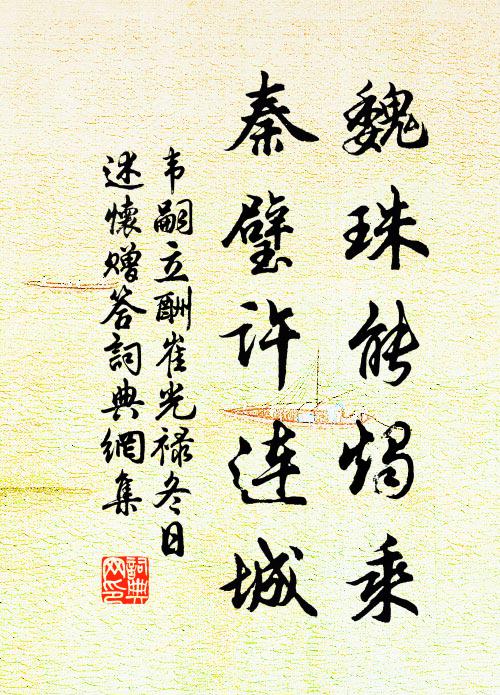 魏珠能燭乘
秦璧許連城
韦嗣立酬崔光禄冬日
述懷赠答詞典網集
詞典
网印